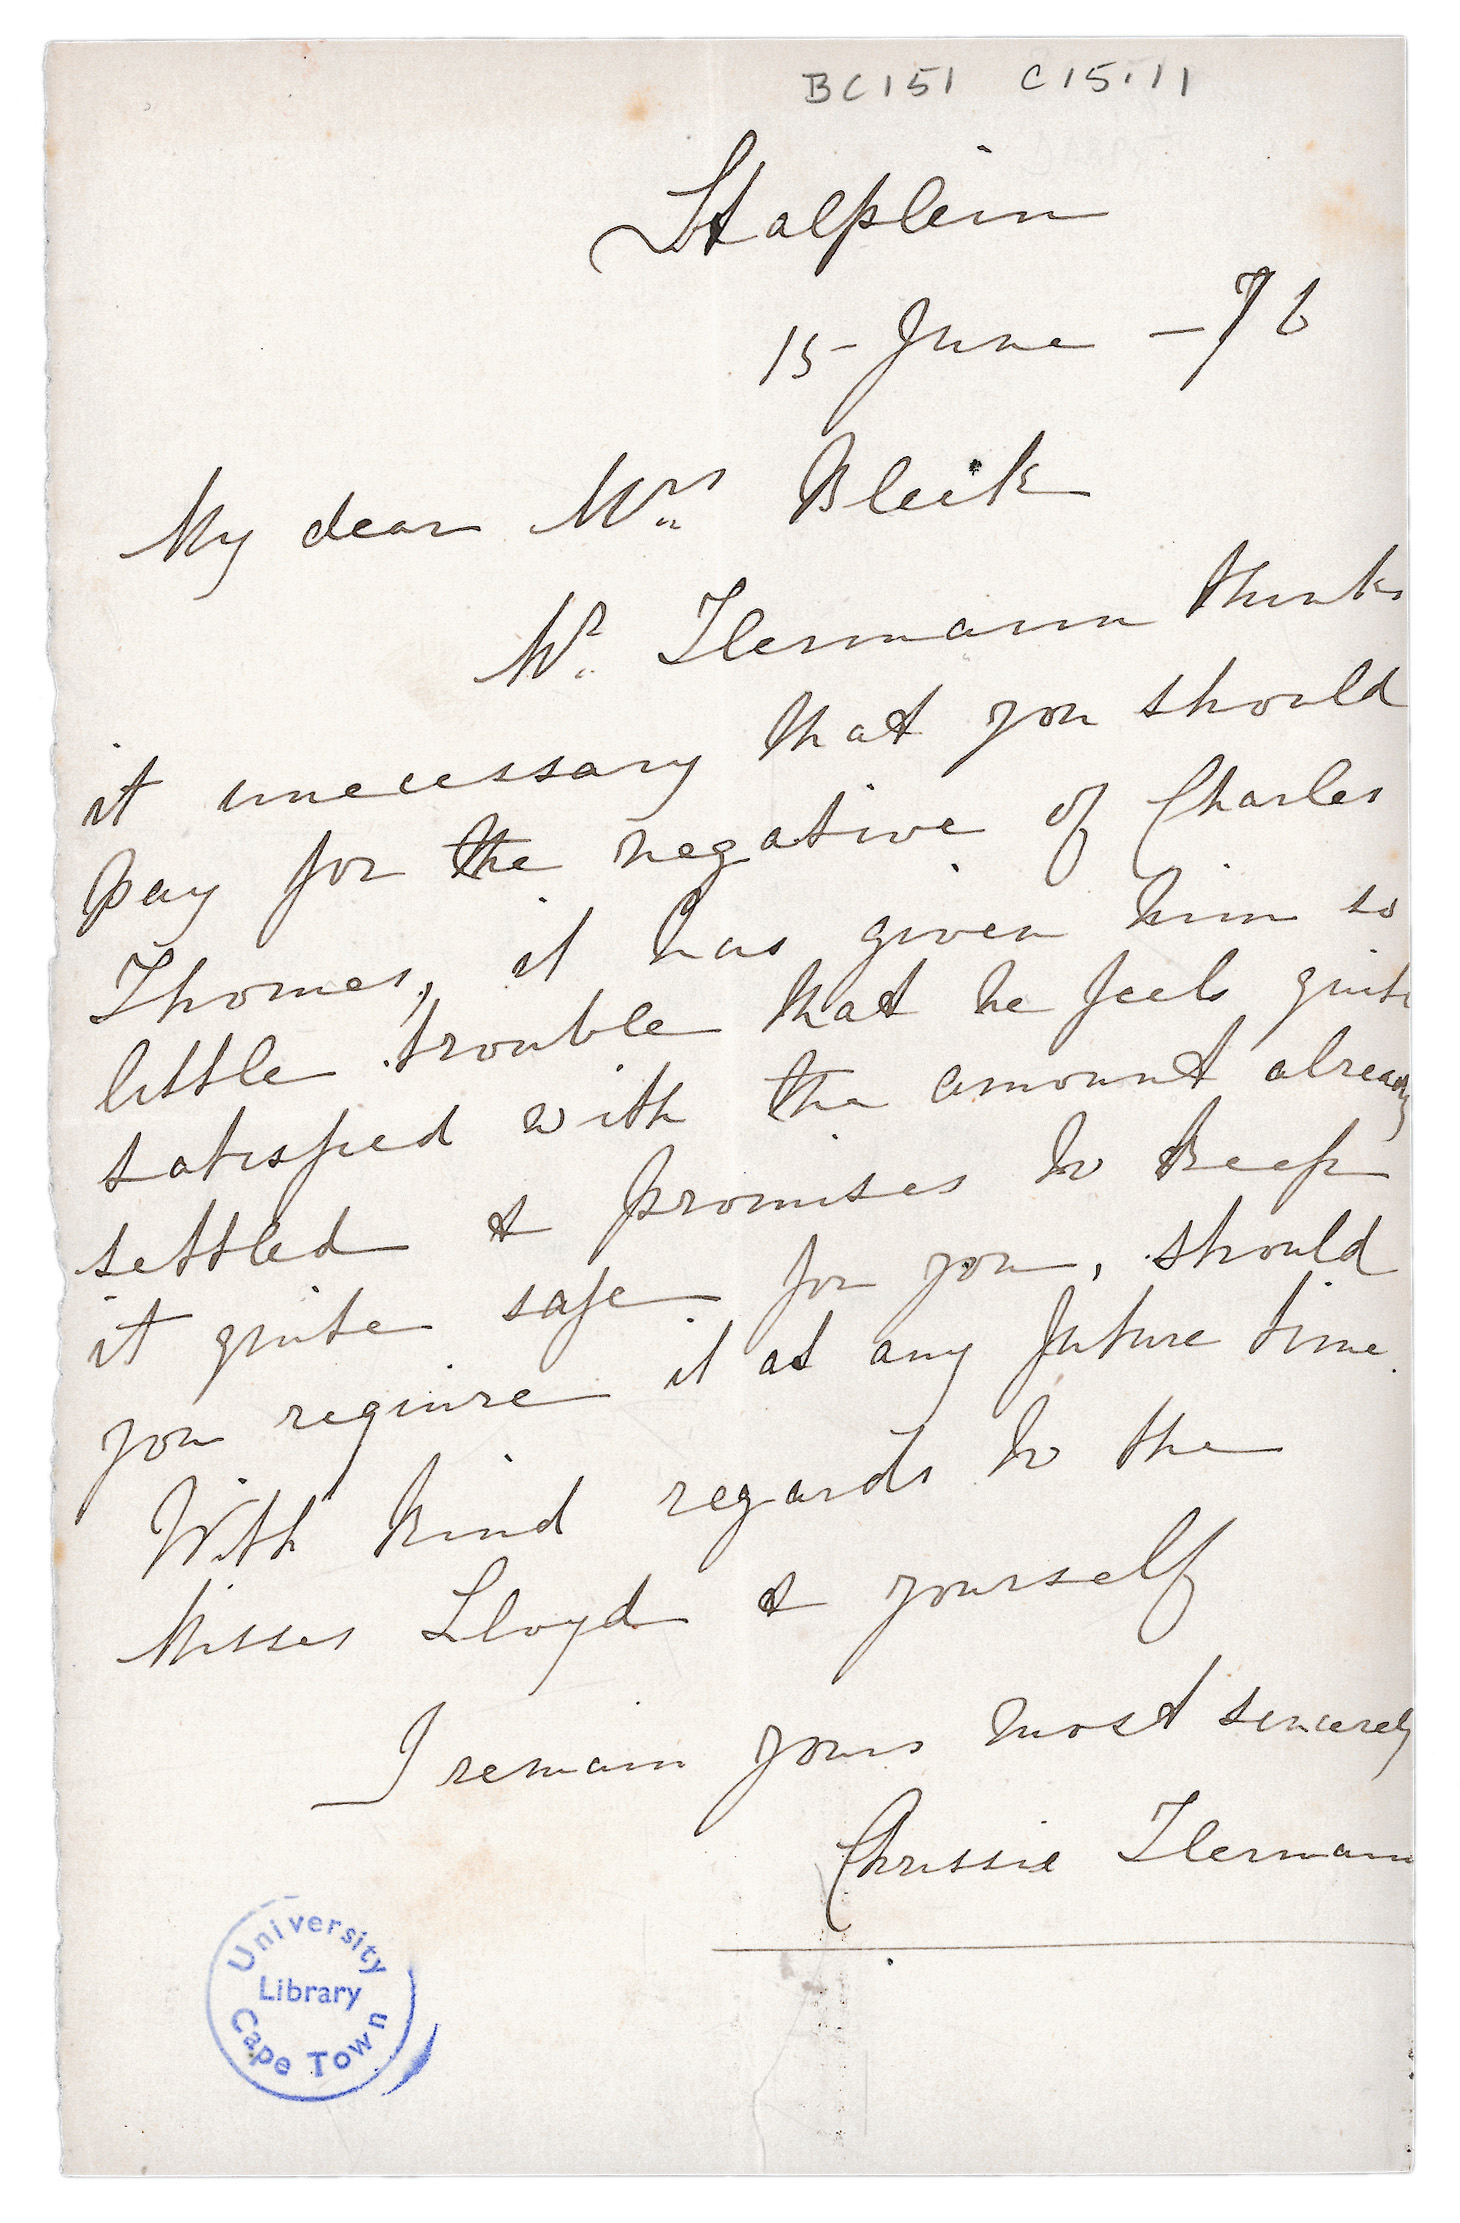 BC151 C15.11
Stalplein
15 June - 76
My dear Mrs Bleek
Mr Hermann thinks
it unecessary that you should
pay for the negative of Charles
Thomas, it has given him so
little trouble that he feels quite
satisfied with the amount already
settled & promises to keep
it quite safe for you, should
you require it at any future time.
With kind regards to the
Misses Lloyd & yourself
I remain yours most sincerely
Chrissie Hermann
University
Library
Cape Town